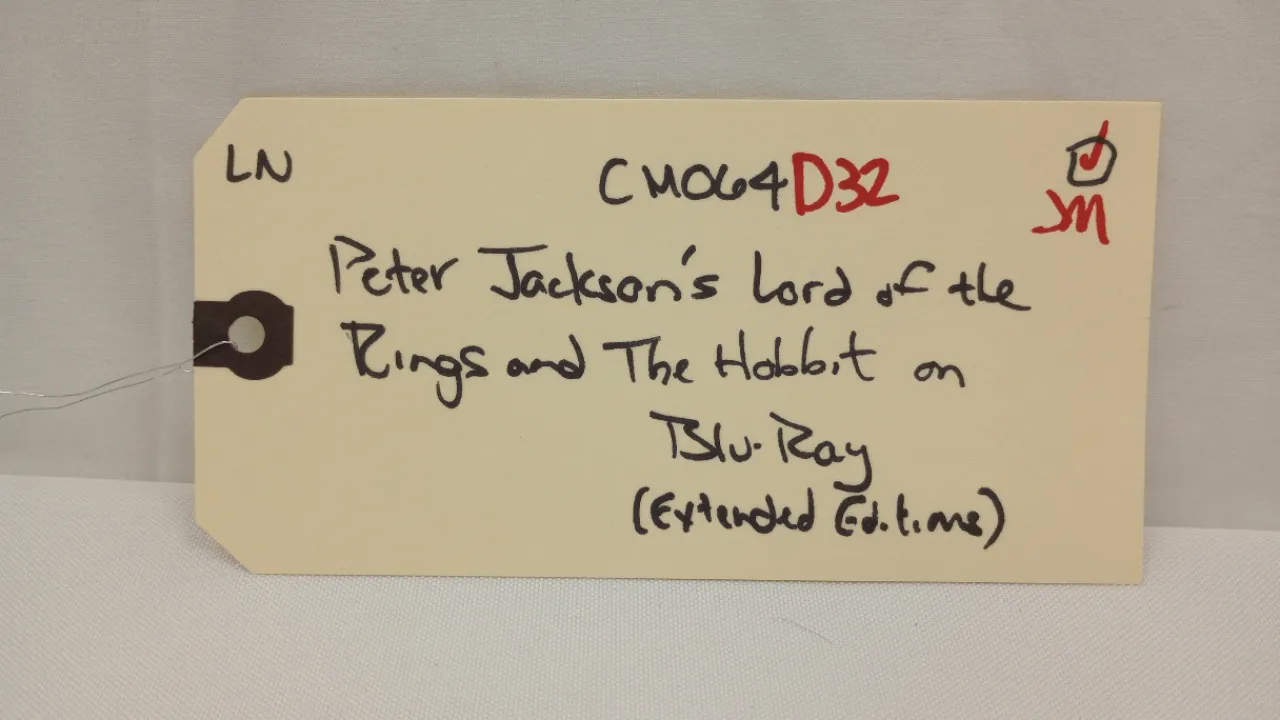 LN
CM064D32
JM
Peter Jackson's Lord of the
Rings and The Hobbit on
Blu-Ray
(Extended Editions)